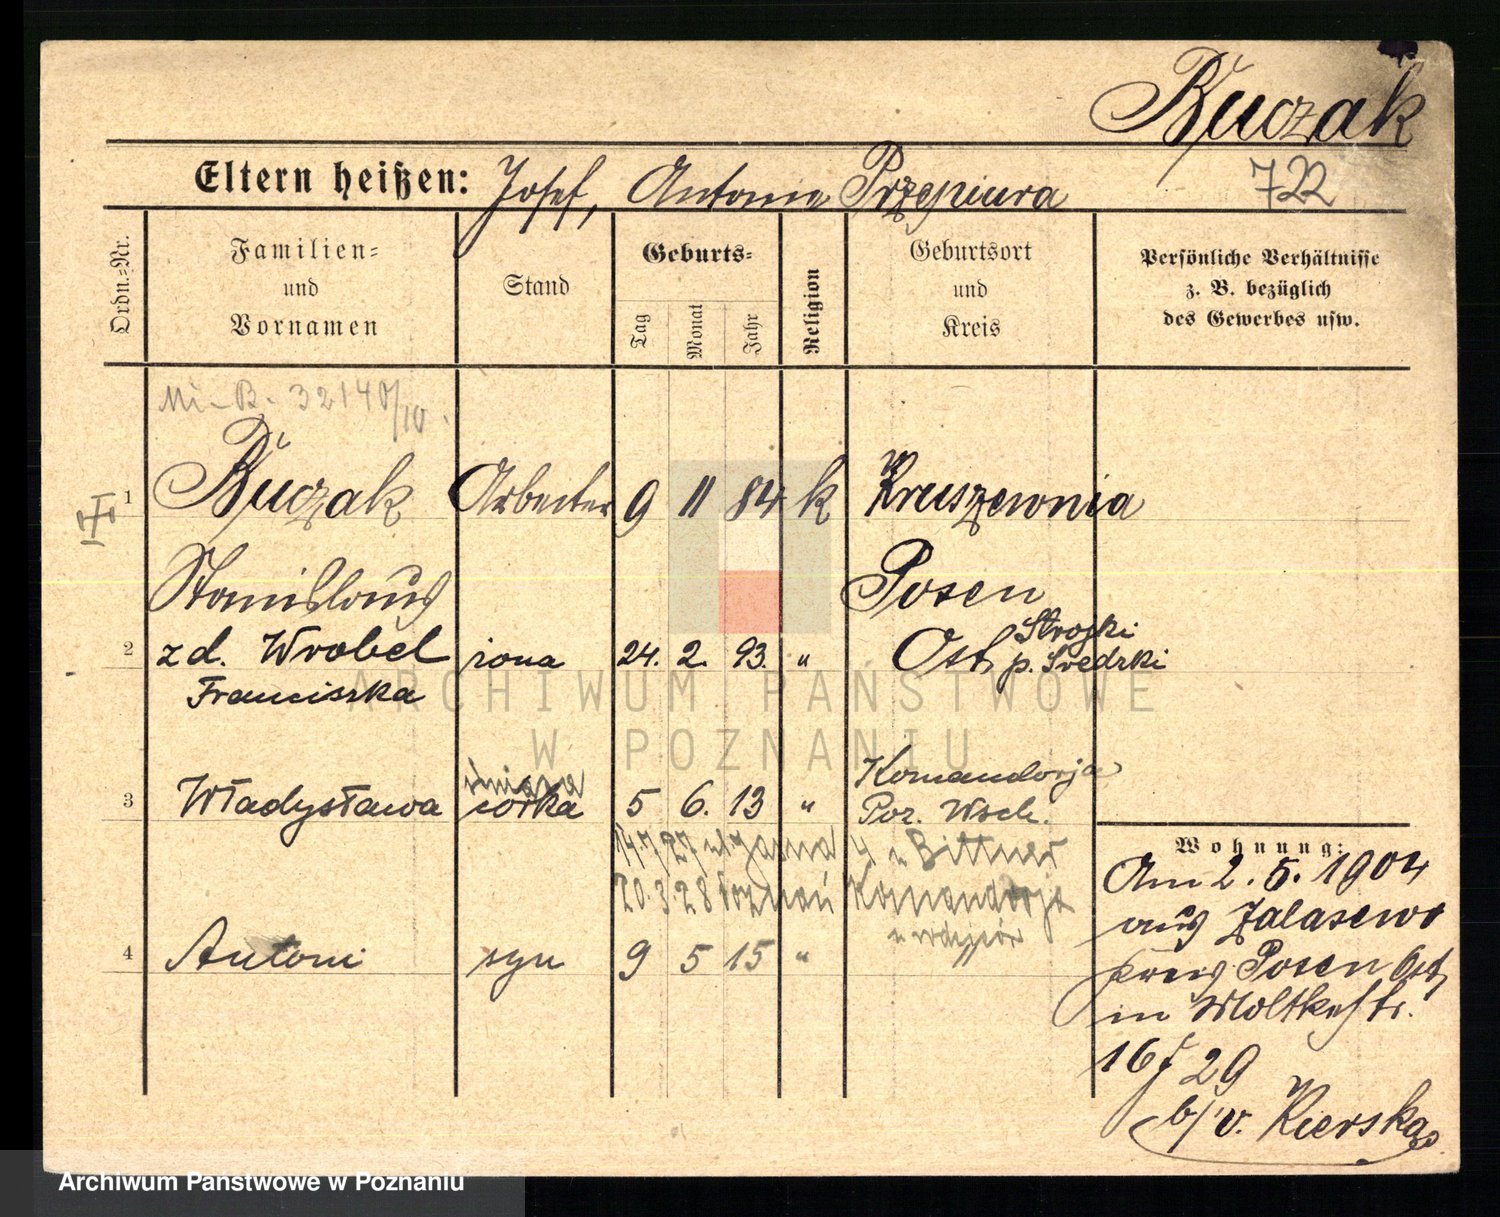 Buczak
722
Eltern heißen: Josef, Antonie Przepiura
Ordn.-Nr.
Familien- und Vornamen
Stand
Geburts-
Tag
Monat
Jahr
Religion
Geburtsort und Kreis
Persönliche Verhältnisse z. B. bezüglich des Gewerbes usw.
Mi-B. 32140/10.
1 Buczak Arbeiter 9 11 84 k Kruszewnia
Stanislaus Posen
2 zd. Wrobel żona 24. 2. 93. " Ost Strozki
Franciszka p. Średzki
Komandorja
3 Władysława córka 5 6. 13 " Poz. Wsch.
14.7.27 4 u Bittner
20.3.28 Poznań Komandorja
4 Antoni syn 9 5 15 "
Wohnung:
Am 2. 5. 1904
aus Zalasewo
Kreis Posen Ost
in Moltkestr.
16 29
b/v. Kierska
ARCHIWUM PAŃSTWOWE
W POZNANIU
Archiwum Państwowe w Poznaniu